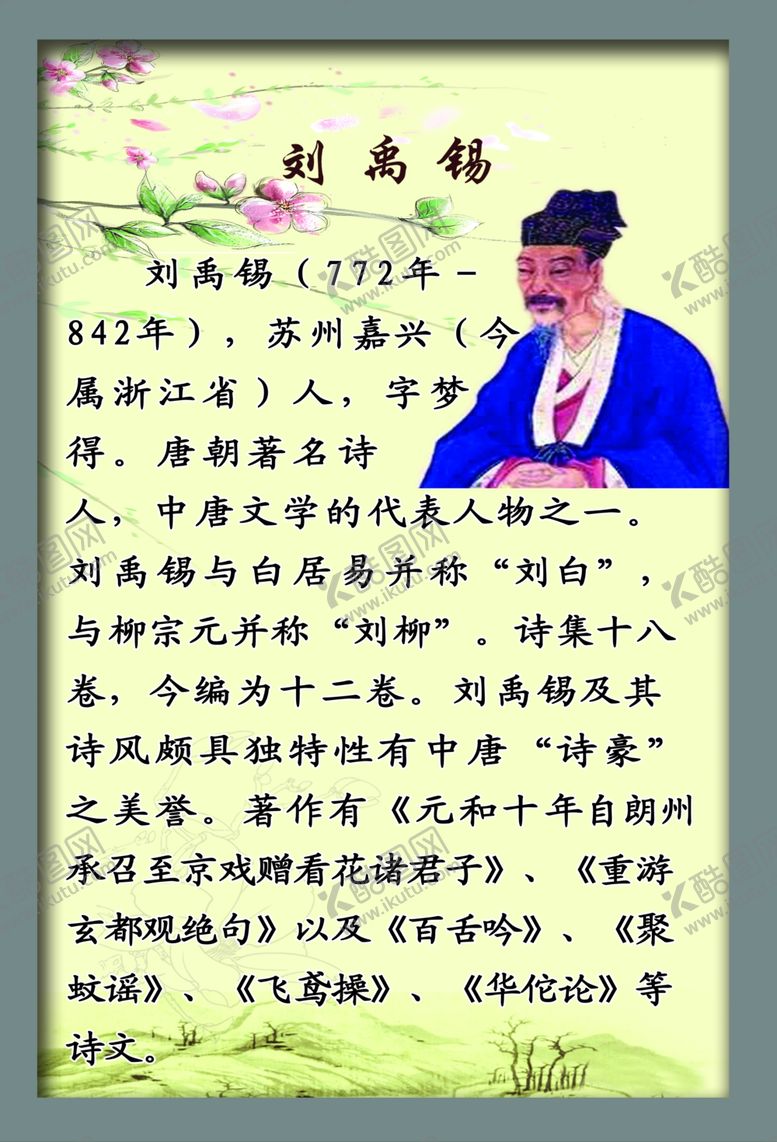 刘禹锡
刘禹锡（772年－
842年），苏州嘉兴（今
属浙江省）人，字梦
得。唐朝著名诗
人，中唐文学的代表人物之一。
刘禹锡与白居易并称“刘白”，
与柳宗元并称“刘柳”。诗集十八
卷，今编为十二卷。刘禹锡及其
诗风颇具独特性有中唐“诗豪”
之美誉。著作有《元和十年自朗州
承召至京戏赠看花诸君子》、《重游
玄都观绝句》以及《百舌吟》、《聚
蚊谣》、《飞鸢操》、《华佗论》等
诗文。
酷图网
www.ikutu.com